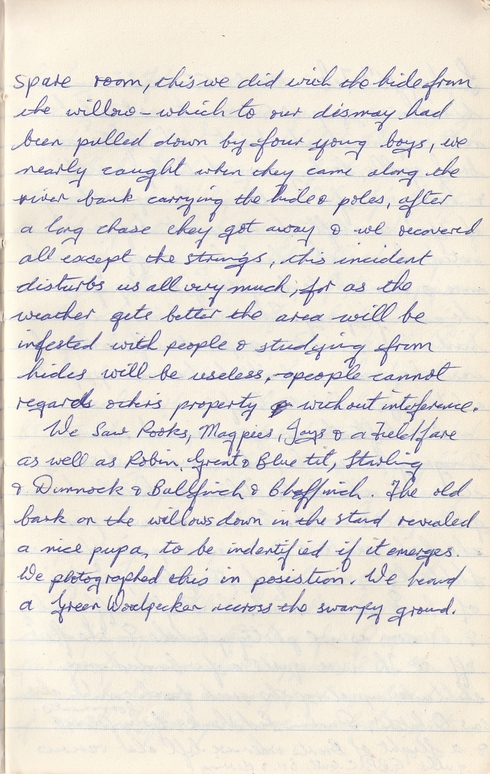 spare room, this we did with the hide from
the willow - which to our dismay had
been pulled down by four young boys, we
nearly caught when they came along the
river bank carrying the hide & poles, after
a long chase they got away & we recovered
all except the strings, this incident
disturbs us all very much, for as the
weather gets better the area will be
infested with people & studying from
hides will be useless, - people cannot
regards others property without interference.
We Saw Rooks, Magpies, Jays & a Fieldfare
as well as Robin, Great & Blue tit, Starling
& Dunnock & Bullfinch & Chaffinch. The old
bark on the willows down in the stard revealed
a nice pupa, to be indentified if it emerges.
We photographed this in posistion. We heard
a Green Woodpecker accross the swampy ground.